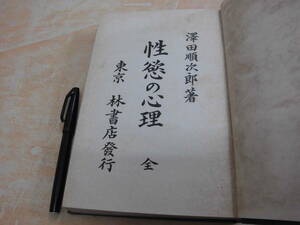 澤田順次郎著
性慾の心理 全
東京 林書店發行